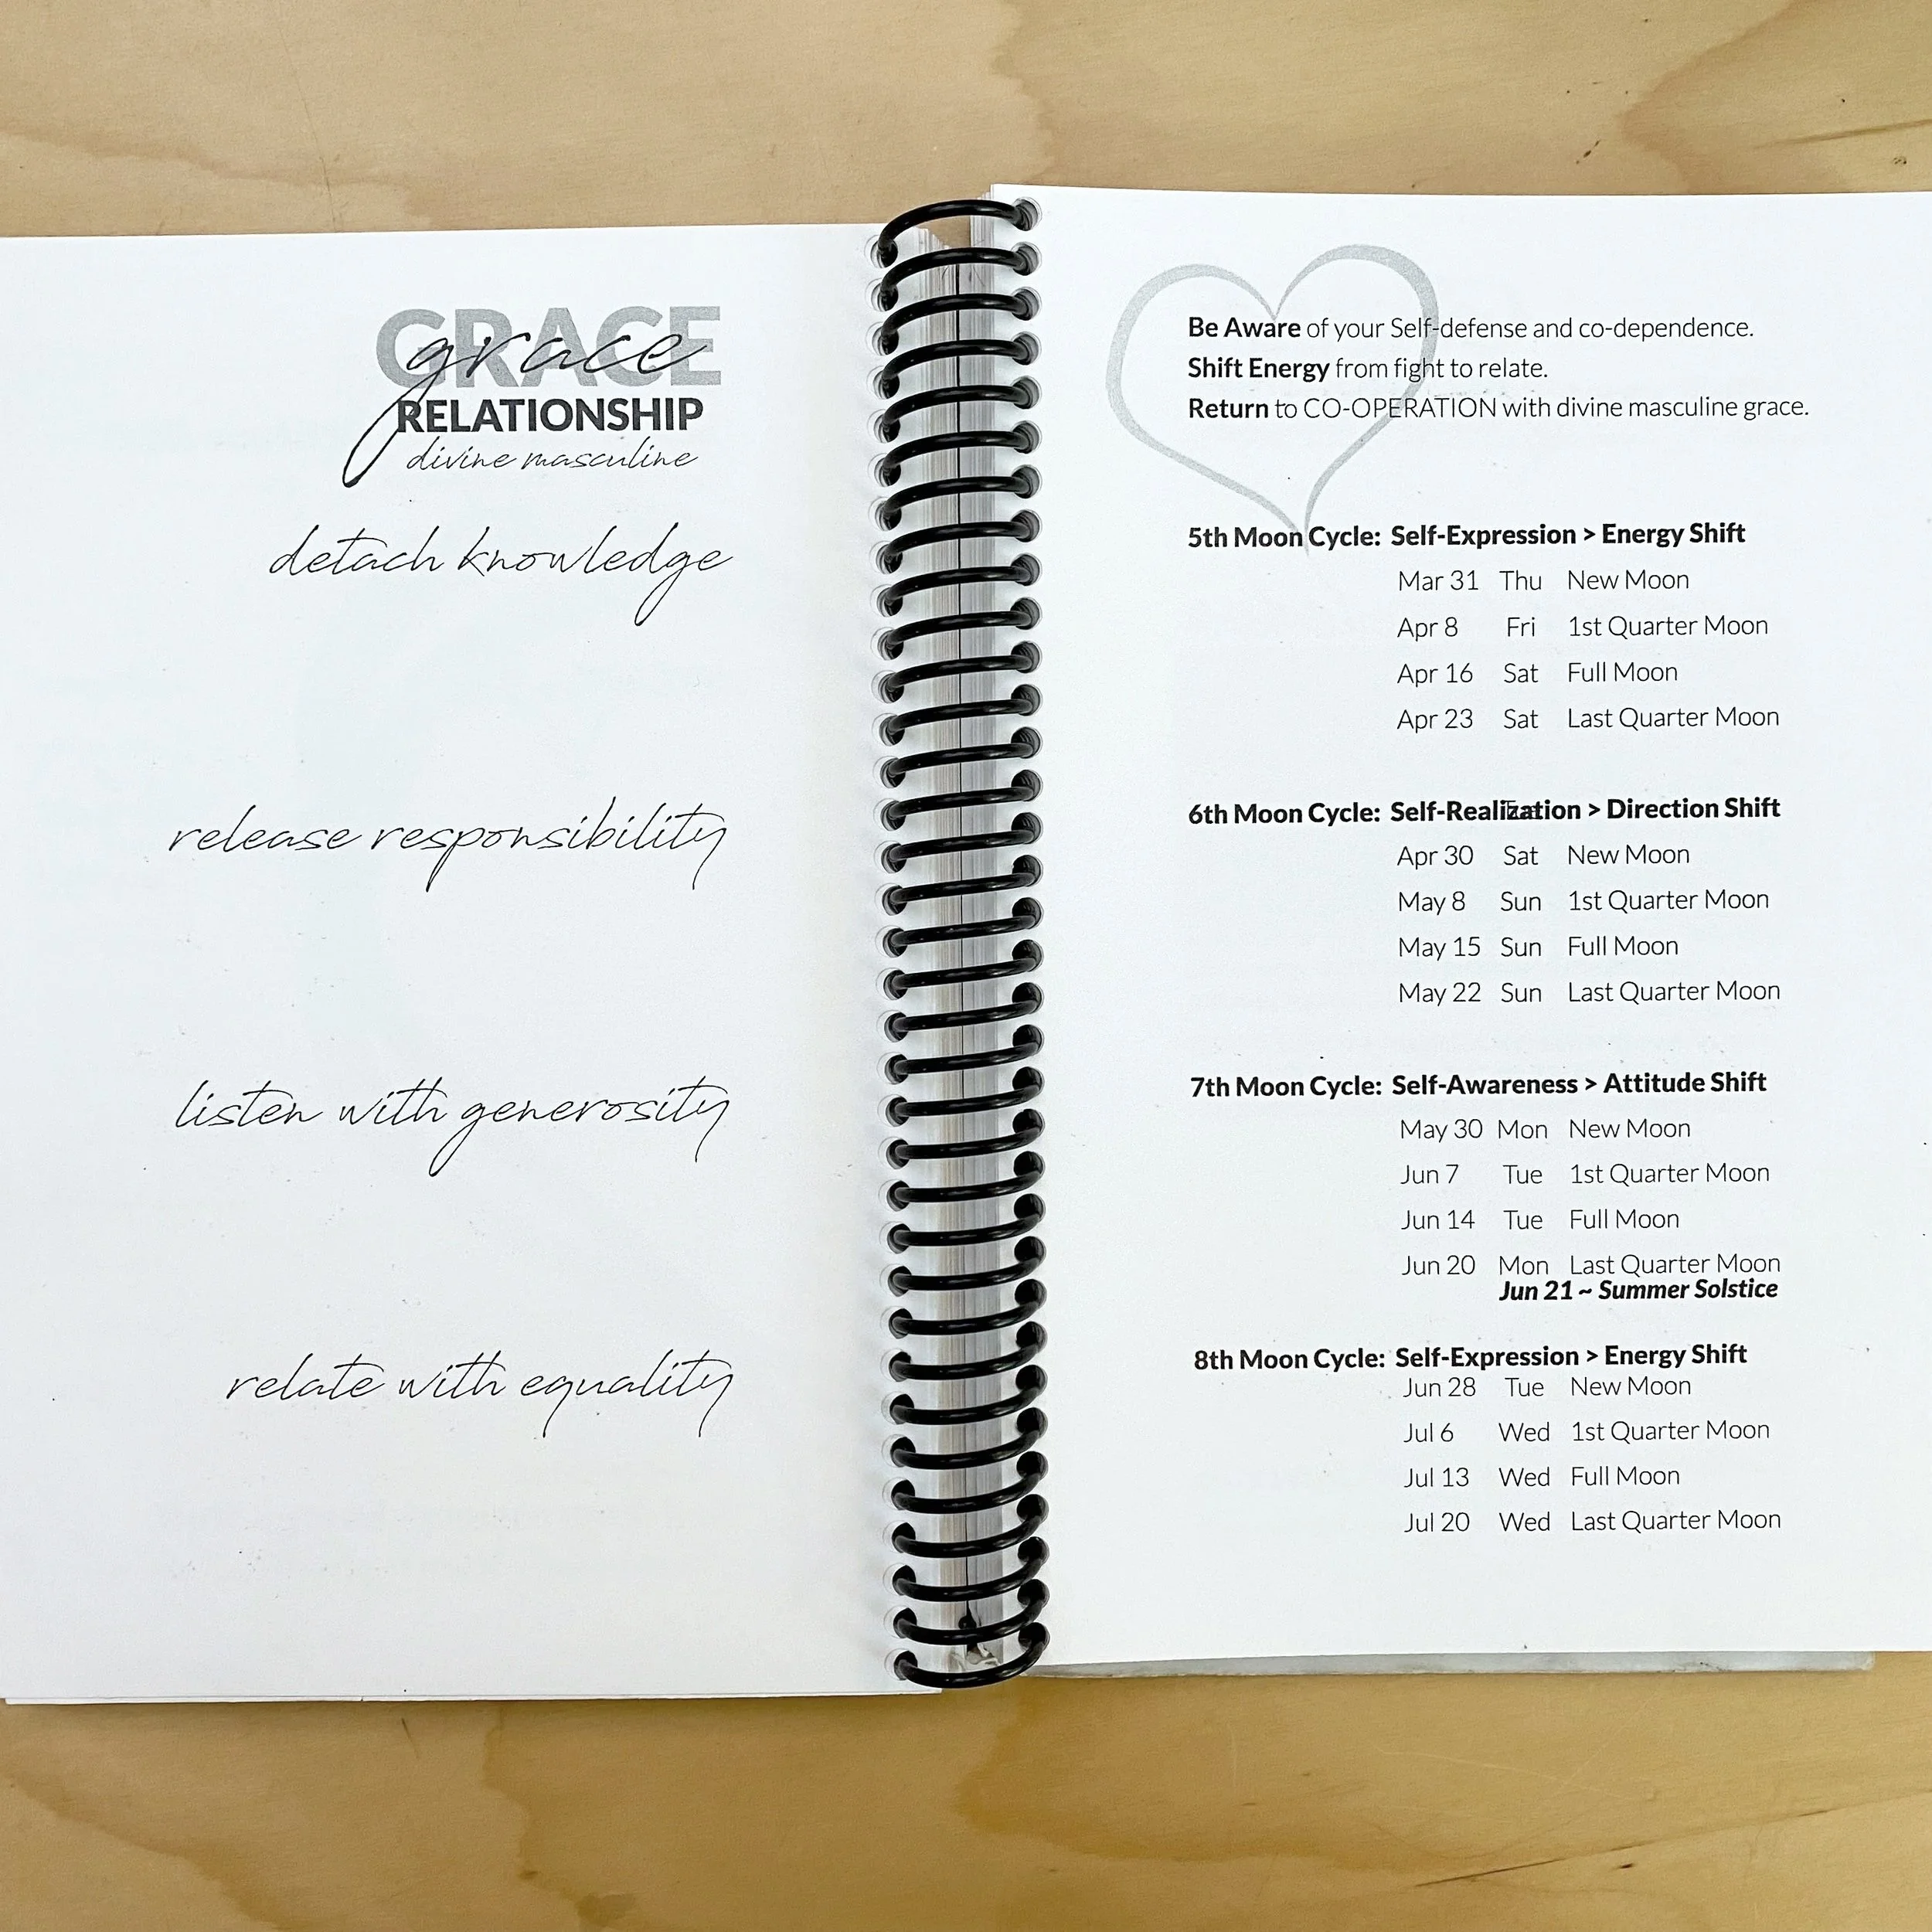 GRACE
grace
RELATIONSHIP
divine masculine
detach knowledge
release responsibility
listen with generosity
relate with equality
Be Aware of your Self-defense and co-dependence.
Shift Energy from fight to relate.
Return to CO-OPERATION with divine masculine grace.
5th Moon Cycle: Self-Expression > Energy Shift
Mar 31 Thu New Moon
Apr 8 Fri 1st Quarter Moon
Apr 16 Sat Full Moon
Apr 23 Sat Last Quarter Moon
6th Moon Cycle: Self-Realization > Direction Shift
Apr 30 Sat New Moon
May 8 Sun 1st Quarter Moon
May 15 Sun Full Moon
May 22 Sun Last Quarter Moon
7th Moon Cycle: Self-Awareness > Attitude Shift
May 30 Mon New Moon
Jun 7 Tue 1st Quarter Moon
Jun 14 Tue Full Moon
Jun 20 Mon Last Quarter Moon
Jun 21 ~ Summer Solstice
8th Moon Cycle: Self-Expression > Energy Shift
Jun 28 Tue New Moon
Jul 6 Wed 1st Quarter Moon
Jul 13 Wed Full Moon
Jul 20 Wed Last Quarter Moon